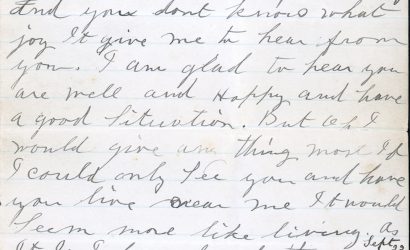 and you dont know what
joy It give me to hear from
you. I am glad to hear you
are well and Happy and have
a good Situation. But Oh I
would give any thing most If
I could only See you and have
you live near me It would
Seem more like living, as
Sept 23